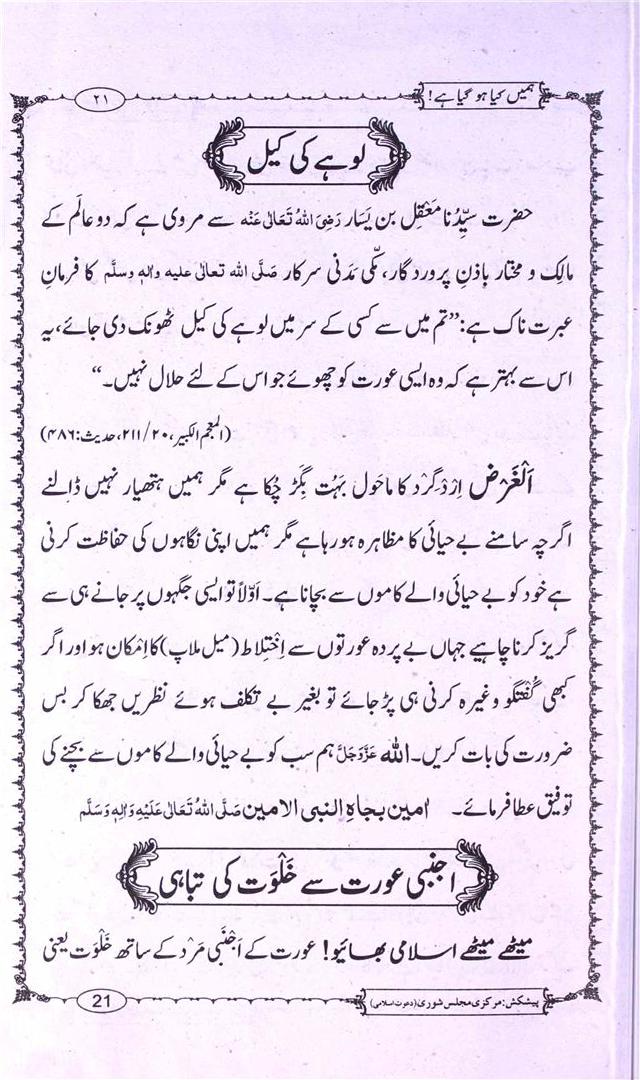 ہمیں کیا ہو گیا ہے!
۲۱
لوہے کی کیل
حضرت سیِّدُنا مَعْقِل بن یَسار رَضِیَ اللّٰہُ تَعَالٰی عَنْہ سے مروی ہے کہ دو عالَم کے
مالِک و مختار باذنِ پروردگار، مکّی مَدَنی سرکار صَلَّی اللہ تعالٰی علیہ والہٖ وسلَّم کا فرمانِ
عبرت ناک ہے: ”تم میں سے کسی کے سر میں لوہے کی کیل ٹھونک دی جائے، یہ
اس سے بہتر ہے کہ وہ ایسی عورت کو چھوئے جو اس کے لئے حلال نہیں۔“
(المعجم الکبیر، ۲۰/۲۱۱، حدیث: ۴۸۶)
اَلْغَرَض اِرْد گِرْد کا ماحَول بہُت بِگَڑ چُکا ہے مگر ہمیں ہتھیار نہیں ڈالنے
اگرچہ سامنے بے حیائی کا مظاہرہ ہو رہا ہے مگر ہمیں اپنی نگاہوں کی حفاظت کرنی
ہے خود کو بے حیائی والے کاموں سے بچانا ہے۔ اَوَّلاً تو ایسی جگہوں پر جانے ہی سے
گریز کرنا چاہیے جہاں بے پردہ عورتوں سے اِخْتِلاط (میل ملاپ) کا اِمْکان ہو اور اگر
کبھی گُفْتگو وغیرہ کرنی ہی پڑ جائے تو بغیر بے تکلف ہوئے نظریں جھکا کر بس
ضرورت کی بات کریں۔ اللّٰہ عَزَّوَجَلَّ ہم سب کو بے حیائی والے کاموں سے بچنے کی
توفیق عطا فرمائے۔ اٰمین بجاہِ النبی الامین صَلَّی اللّٰہُ تَعَالٰی عَلَیْہِ وَاٰلِہٖ وَسَلَّم
اجنبی عورت سے خَلْوَت کی تباہی
میٹھے میٹھے اسلامی بھائیو! عورت کے اَجْنَبی مَرْد کے ساتھ خَلْوَت یعنی
پیشکش: مرکزی مجلس شوریٰ (دعوتِ اسلامی)
21